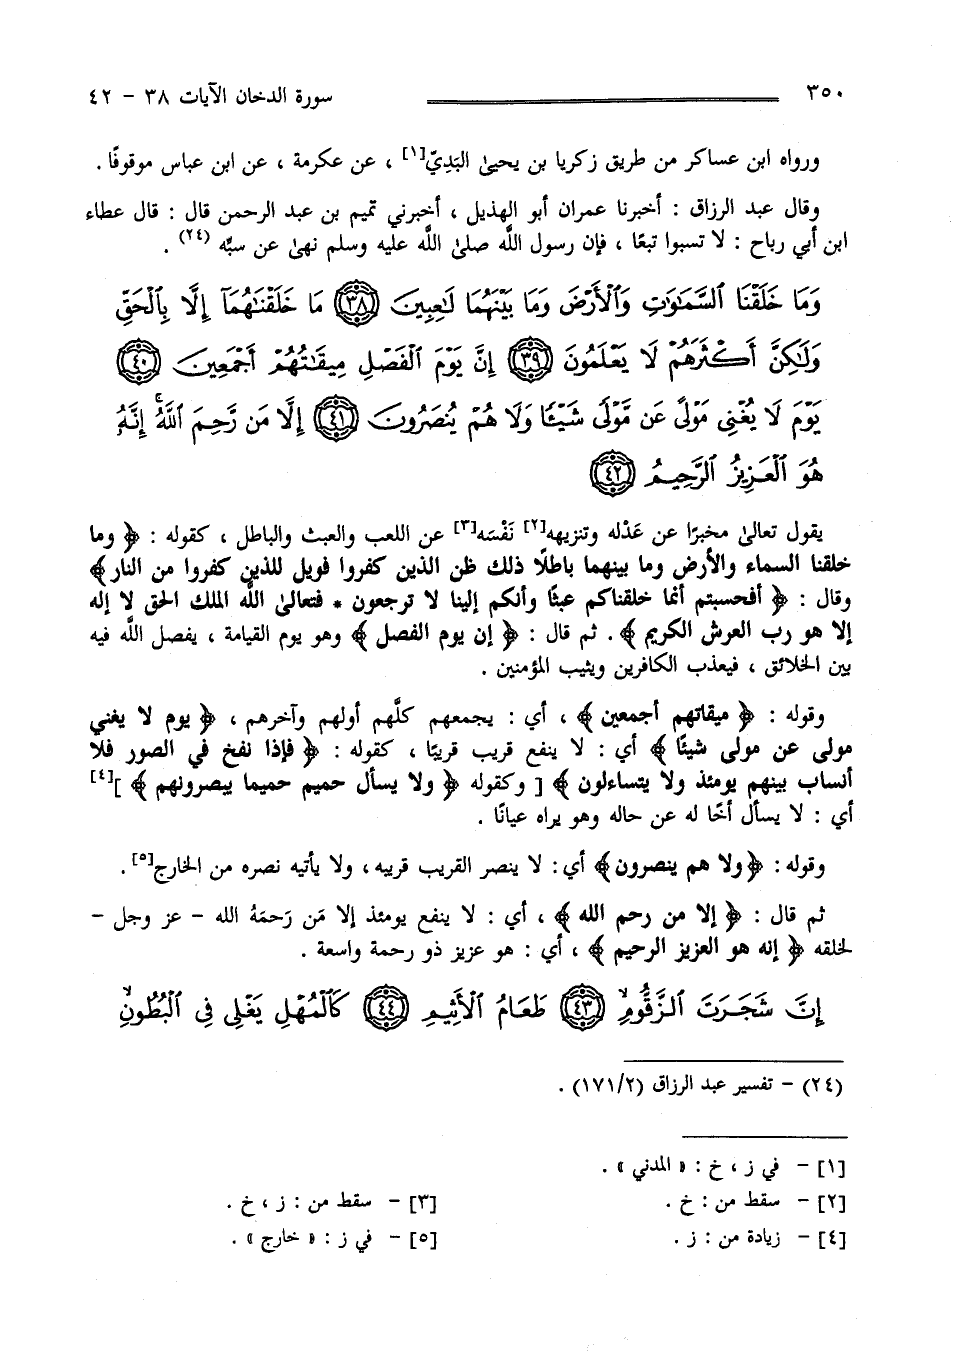 ٣٥٠ سورة الدخان الآيات ٣٨ – ٤٢
ورواه ابن عساكر من طريق زكريا بن يحيىٰ البَدِيّ[١] ، عن عكرمة ، عن ابن عباس موقوفًا .
وقال عبد الرزاق : أخبرنا عمران أبو الهذيل ، أخبرني تميم بن عبد الرحمن قال : قال عطاء
ابن أبي رباح : لا تسبوا تبعًا ، فإن رسول اللَّه صلىٰ اللَّه عليه وسلم نهىٰ عن سبِّه (٢٤) .
وَمَا خَلَقْنَا ٱلسَّمَٰوَٰتِ وَٱلْأَرْضَ وَمَا بَيْنَهُمَا لَٰعِبِينَ ٣٨ مَا خَلَقْنَٰهُمَآ إِلَّا بِٱلْحَقِّ
وَلَٰكِنَّ أَكْثَرَهُمْ لَا يَعْلَمُونَ ٣٩ إِنَّ يَوْمَ ٱلْفَصْلِ مِيقَٰتُهُمْ أَجْمَعِينَ ٤٠
يَوْمَ لَا يُغْنِى مَوْلًى عَن مَّوْلًى شَيْـًٔا وَلَا هُمْ يُنصَرُونَ ٤١ إِلَّا مَن رَّحِمَ ٱللَّهُ ۚ إِنَّهُۥ
هُوَ ٱلْعَزِيزُ ٱلرَّحِيمُ ٤٢
يقول تعالىٰ مخبرًا عن عَدْله وتنزيهه[٢] نَفْسَه[٣] عن اللعب والعبث والباطل ، كقوله : ﴿ وما
خلقنا السماء والأرض وما بينهما باطلًا ذلك ظن الذين كفروا فويل للذين كفروا من النار ﴾
وقال : ﴿ أفحسبتم أنما خلقناكم عبثًا وأنكم إلينا لا ترجعون * فتعالىٰ اللَّه الملك الحق لا إله
إلا هو رب العرش الكريم ﴾. ثم قال : ﴿ إن يوم الفصل ﴾ وهو يوم القيامة ، يفصل اللَّه فيه
بين الخلائق ، فيعذب الكافرين ويثيب المؤمنين .
وقوله : ﴿ ميقاتهم أجمعين ﴾ ، أي : يجمعهم كلَّهم أولهم وآخرهم ، ﴿ يوم لا يغني
مولى عن مولى شيئًا ﴾ أي : لا ينفع قريب قريبًا ، كقوله : ﴿ فإذا نفخ في الصور فلا
أنساب بينهم يومئذ ولا يتساءلون ﴾ [ وكقوله ﴿ ولا يسأل حميم حميما يبصرونهم ﴾ ][٤]
أي : لا يسأل أخًا له عن حاله وهو يراه عيانًا .
وقوله: ﴿ ولا هم ينصرون ﴾ أي: لا ينصر القريب قريبه، ولا يأتيه نصره من الخارج[٥] .
ثم قال : ﴿ إلا من رحم الله ﴾ ، أي : لا ينفع يومئذ إلا مَن رَحمَهُ الله – عز وجل –
لخلقه ﴿ إنه هو العزيز الرحيم ﴾ ، أي : هو عزيز ذو رحمة واسعة .
إِنَّ شَجَرَتَ ٱلزَّقُّومِ ٤٣ طَعَامُ ٱلْأَثِيمِ ٤٤ كَٱلْمُهْلِ يَغْلِى فِى ٱلْبُطُونِ
(٢٤) – تفسير عبد الرزاق (١٧١/٢) .
[١] – في ز ، خ : « المدني » .
[٢] – سقط من : خ . [٣] – سقط من : ز ، خ .
[٤] – زيادة من : ز . [٥] – في ز : « خارج » .